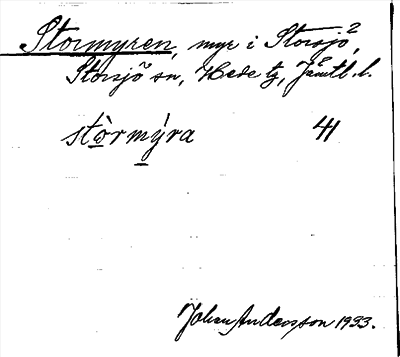 Stormyren, myr i Storsjö²,
Storsjö sn, Hede tg, Jämtl. l.
stòrmýra 41
Johan Andersson 1933.